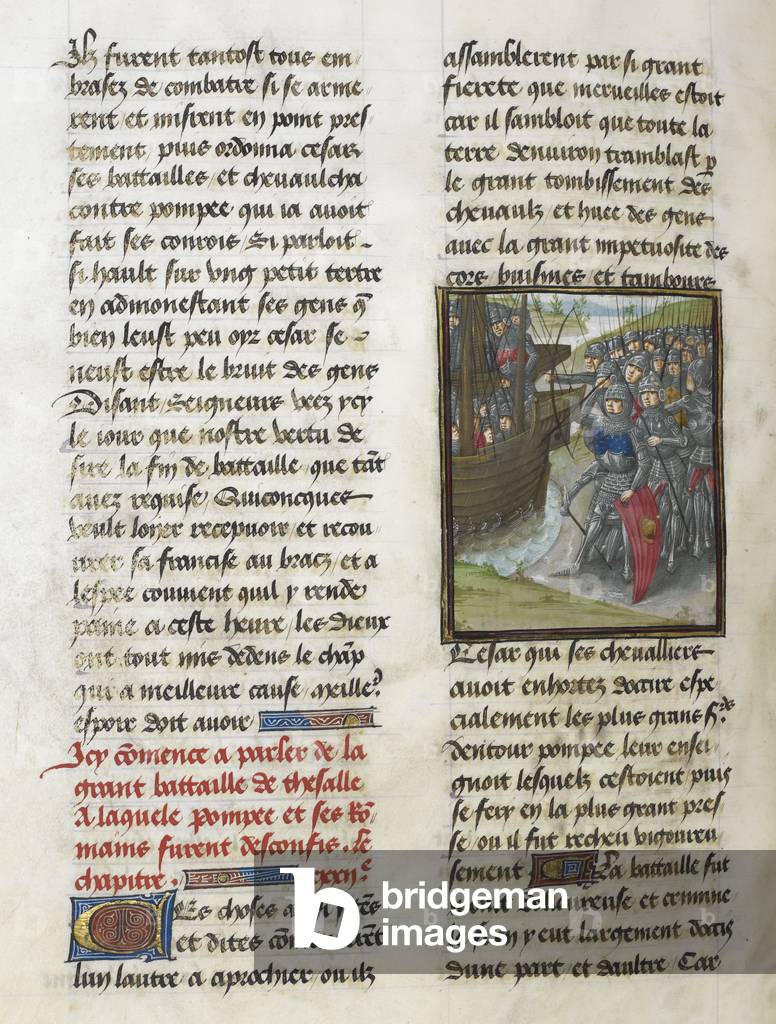 Ilz furent tantost tous em
brasez de combatre si se arme
rent et misrent en point pres
tement, puis ordonna cesar
ses battailles et chevaulcha
contre pompee qui ia avoit
fait ses conrois, Si parloit
si hault sur ung petit tertre
en admonestant ses gens q̃
bien leust peu oyr cesar se
neust estre le bruit des gens
Disant, Seigneurs veez ycy
le iour que nostre vertu de
sire la fin de battaille que tãt
avez requise, Quiconcques
veult loyer recepuoir et recou
urer sa francise au bracz et a
lespee couvient quil y rende
paine a ceste heure, les dieux
ont tout mis dedens le chãp
qui a meilleure cause meille
espoir doit avoir
Icy cõmence a parler de la
grant battaille de thesalle
A laquele pompee et ses Rõ
mains furent desconfis. le
chapitre.
Es choses
et dites
lun lautre a aprochier, ou ilz
assamblerent par si grant
fierete que merveilles estoit
car il sambloit que toute la
terre denviron tramblast p
le grant tombissement des
chevaulz et huee des gens
avec la grant impetuosite des
cors buisines et tambours
Cesar qui ses chevalliers
avoit enhortez doccire espe
cialement les plus grans
dentour pompee leur ensei
gnoit lesquelz cestoient puis
se fery en la plus grant pres
se, ou il fut recheu vigoureu
sement La battaille fut
et crimine
y eut largement doccis
dune part et daultre, Car
b bridgeman
images